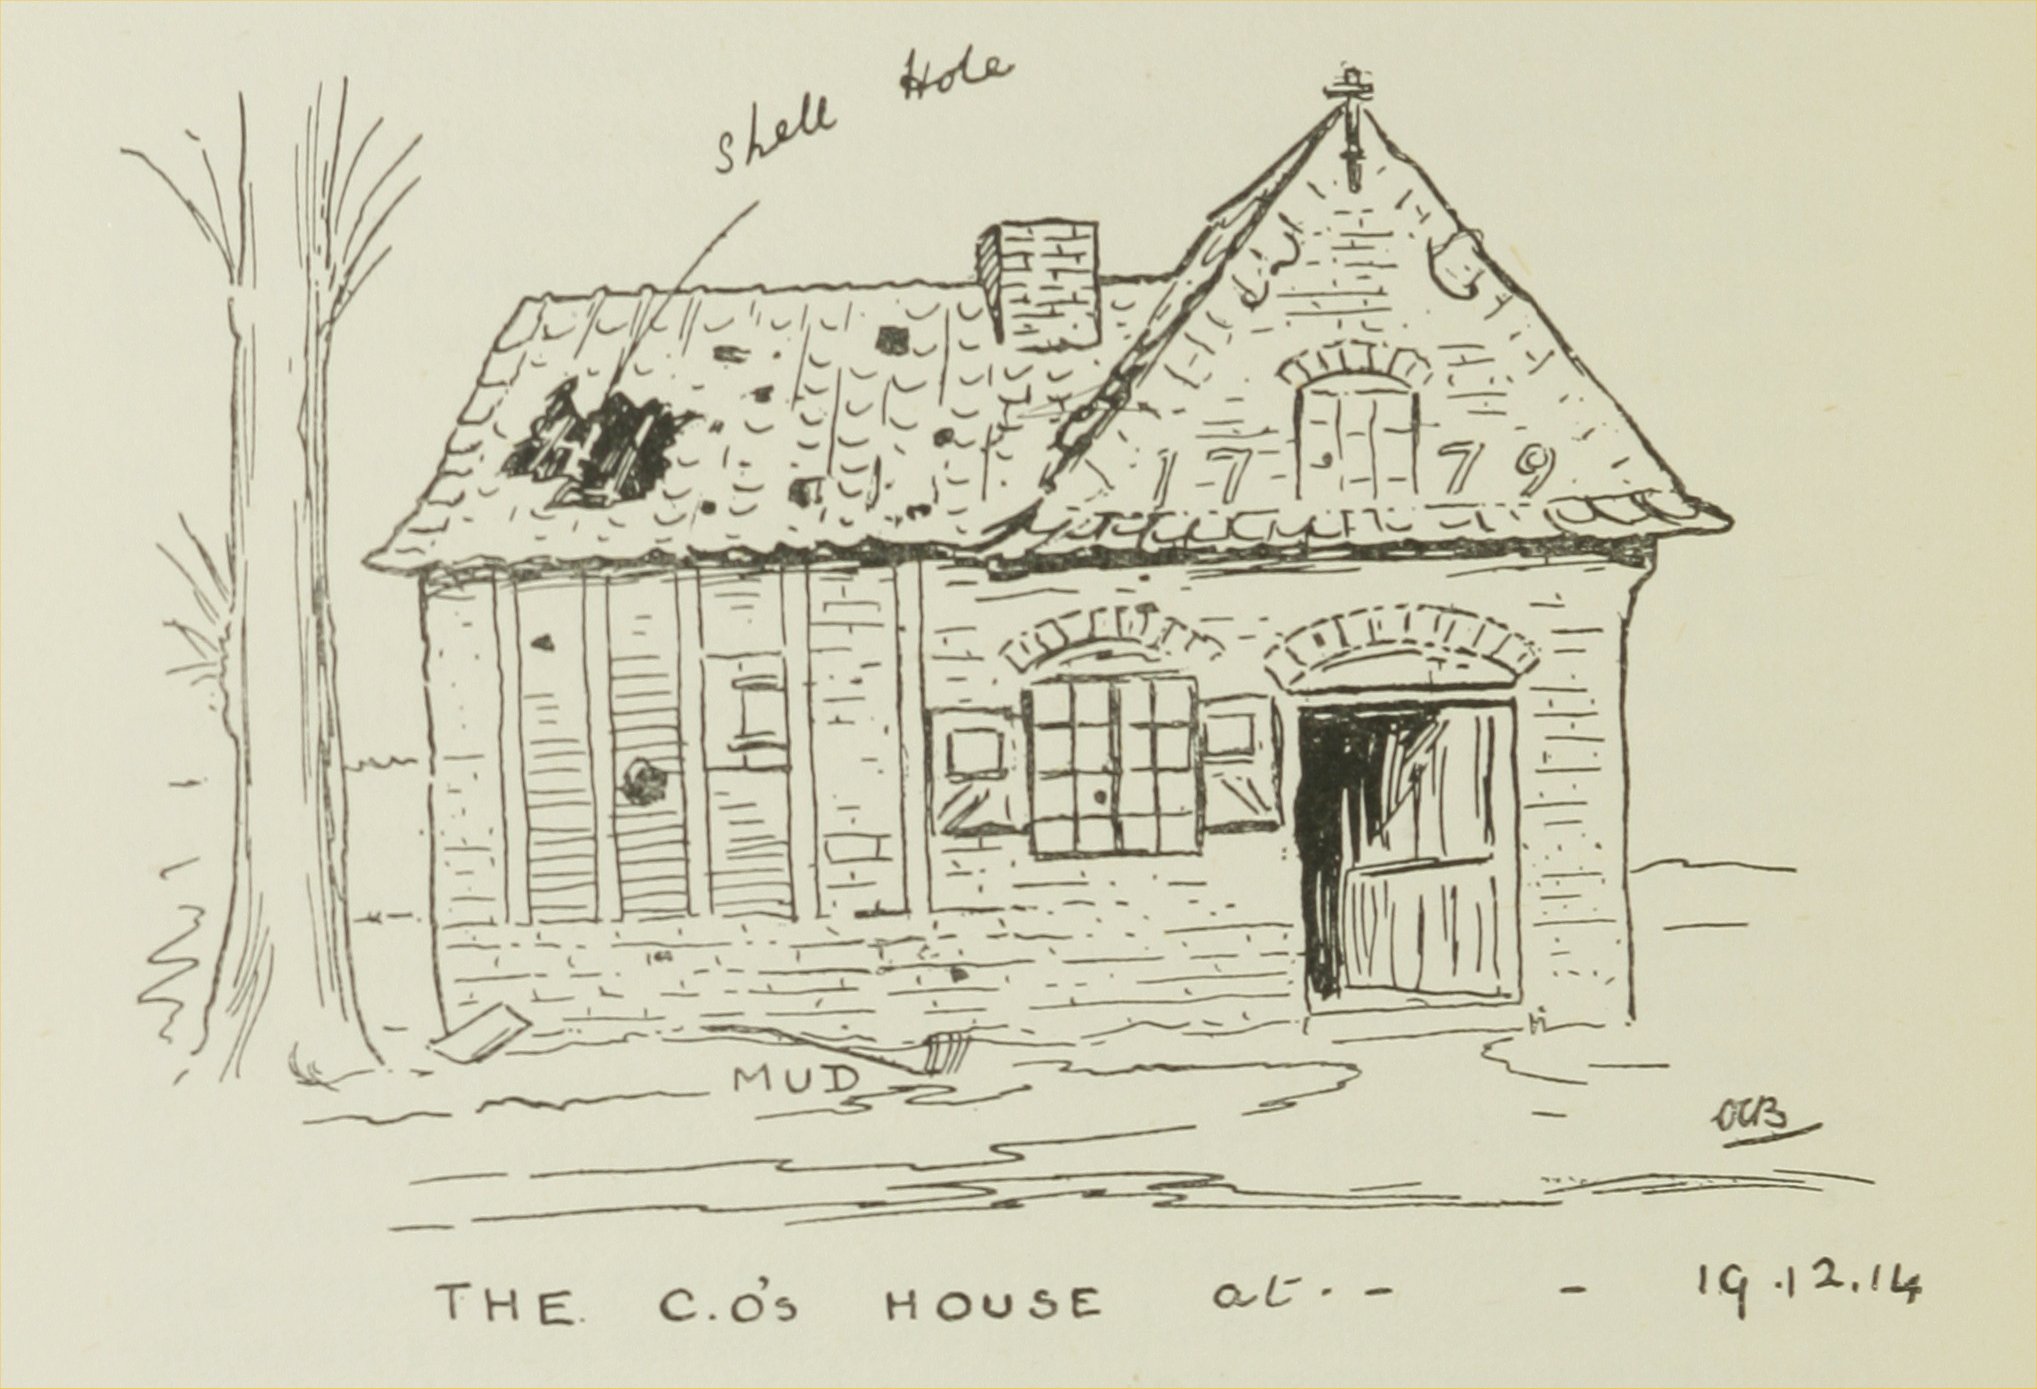 Shell Hole
17 79
MUD
OCB
THE C.O's HOUSE at - - - 19.12.14